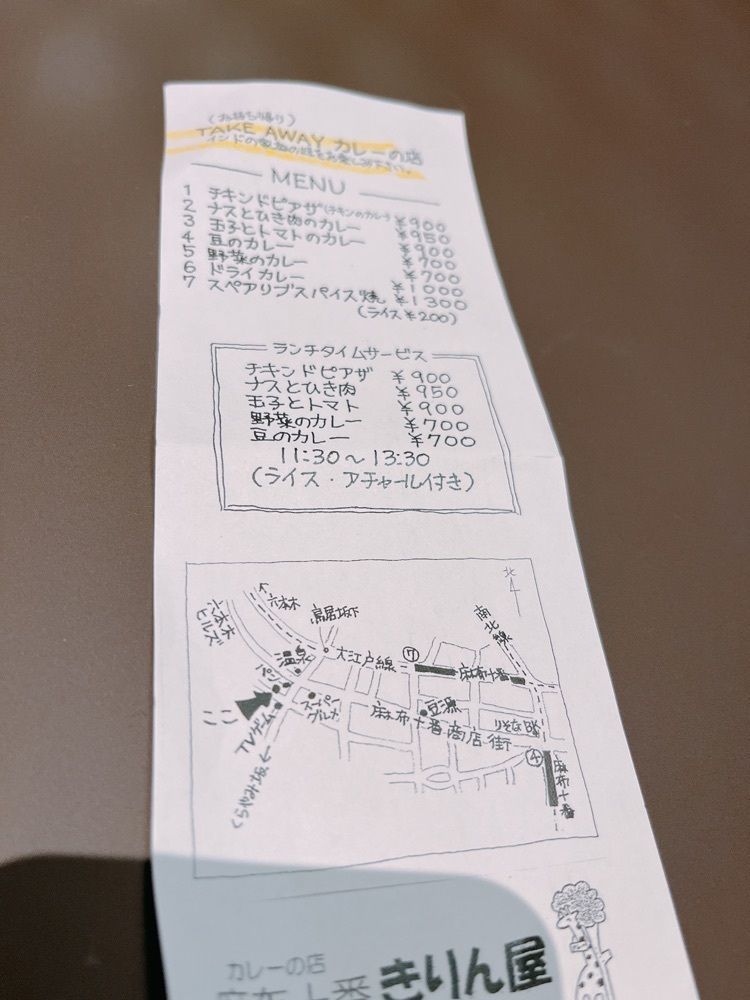 (お持ち帰り)
TAKE AWAY カレーの店
インドの家庭の味をお楽しみ下さい。
MENU
1 チキンドピアザ(チキンのカレー) ¥900
2 ナスとひき肉のカレー ¥950
3 玉子とトマトのカレー ¥900
4 豆のカレー ¥700
5 野菜のカレー ¥700
6 ドライカレー ¥1000
7 スペアリブスパイス焼 ¥1300
(ライス¥200)
ランチタイムサービス
チキンドピアザ ¥900
ナスとひき肉 ¥950
玉子とトマト ¥900
野菜のカレー ¥700
豆のカレー ¥700
11:30～13:30
(ライス・アチャール付き)
北
六本木
六本木ヒルズ
鳥居坂下
南北線
温泉
大江戸線
⑦
麻布十番
パン
ここ
スーパーグルメ
豆源
麻布十番商店街
りそなBK
④
麻布十番
カレーの店
麻布十番 きりん屋